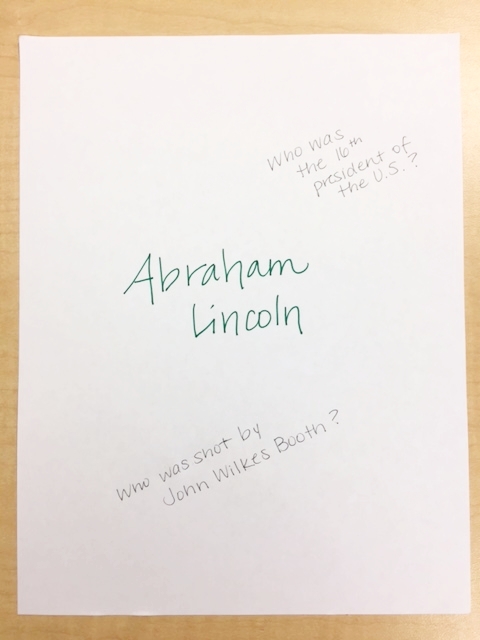 Who was
the 16th
president of
the U.S.?
Abraham
Lincoln
Who was shot by
John Wilkes Booth?